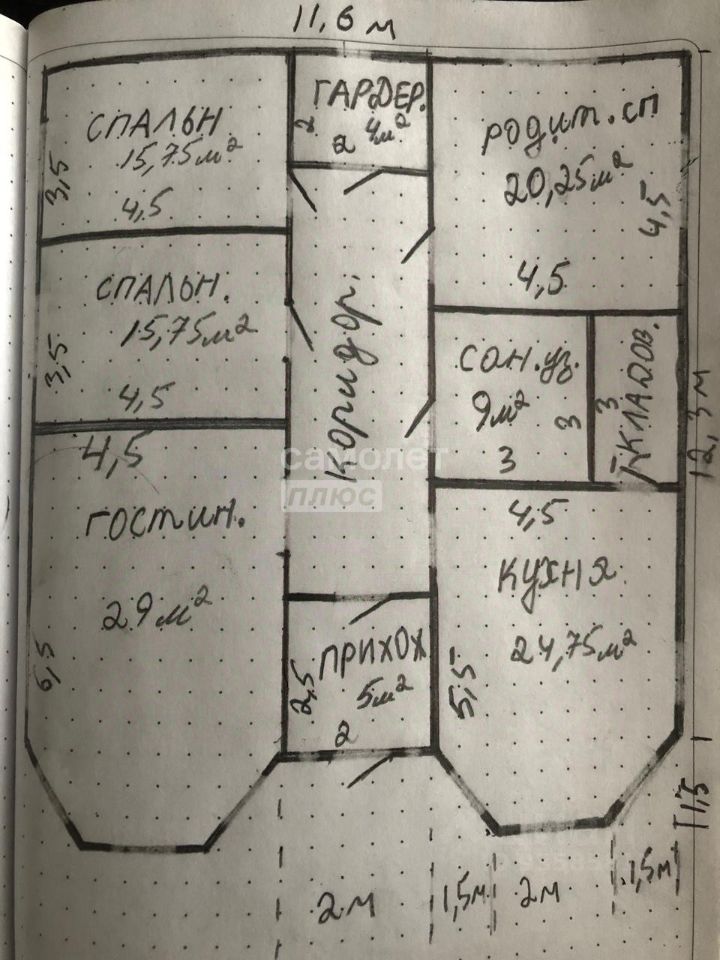 11,6 м
СПАЛЬН
15,75 м²
3,5
4,5
ГАРДЕР.
2
2
4м²
родит. сп
20,25 м²
4,5
4,5
СПАЛЬН.
15,75 м²
3,5
4,5
Коридор.
сан.уз.
9м²
3
3
3
КЛАДОВ.
12,3 м
4,5
гостин.
29 м²
6,5
самолет
плюс
4,5
КУХНЯ
24,75 м²
5,5
ПРИХОЖ
5м²
2,5
2
1,5
2 м
1,5м
2 м
1,5м